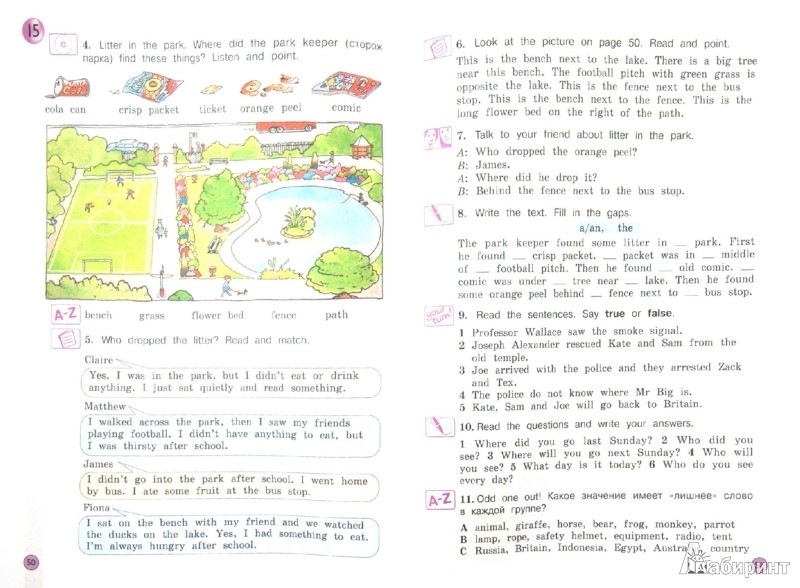 15
4. Litter in the park. Where did the park keeper (сторож
парка) find these things? Listen and point.
cola can crisp packet ticket orange peel comic
A-Z bench grass flower bed fence path
5. Who dropped the litter? Read and match.
Claire
Yes, I was in the park, but I didn't eat or drink
anything. I just sat quietly and read something.
Matthew
I walked across the park, then I saw my friends
playing football. I didn't have anything to eat, but
I was thirsty after school.
James
I didn't go into the park after school. I went home
by bus. I ate some fruit at the bus stop.
Fiona
I sat on the bench with my friend and we watched
the ducks on the lake. Yes, I had something to eat.
I'm always hungry after school.
50
6. Look at the picture on page 50. Read and point.
This is the bench next to the lake. There is a big tree
near this bench. The football pitch with green grass is
opposite the lake. This is the fence next to the bus
stop. This is the bench next to the fence. This is the
long flower bed on the right of the path.
7. Talk to your friend about litter in the park.
A: Who dropped the orange peel?
B: James.
A: Where did he drop it?
B: Behind the fence next to the bus stop.
8. Write the text. Fill in the gaps.
a/an, the
The park keeper found some litter in _ park. First
he found _ crisp packet. _ packet was in _ middle
of _ football pitch. Then he found _ old comic. _
comic was under _ tree near _ lake. Then he found
some orange peel behind _ fence next to _ bus stop.
your turn!
9. Read the sentences. Say true or false.
1 Professor Wallace saw the smoke signal.
2 Joseph Alexander rescued Kate and Sam from the
old temple.
3 Joe arrived with the police and they arrested Zack
and Tex.
4 The police do not know where Mr Big is.
5 Kate, Sam and Joe will go back to Britain.
10. Read the questions and write your answers.
1 Where did you go last Sunday? 2 Who did you
see? 3 Where will you go next Sunday? 4 Who will
you see? 5 What day is it today? 6 Who do you see
every day?
A-Z 11. Odd one out! Какое значение имеет «лишнее» слово
в каждой группе?
A animal, giraffe, horse, bear, frog, monkey, parrot
B lamp, rope, safety helmet, equipment, radio, tent
C Russia, Britain, Indonesia, Egypt, country
Лабиринт